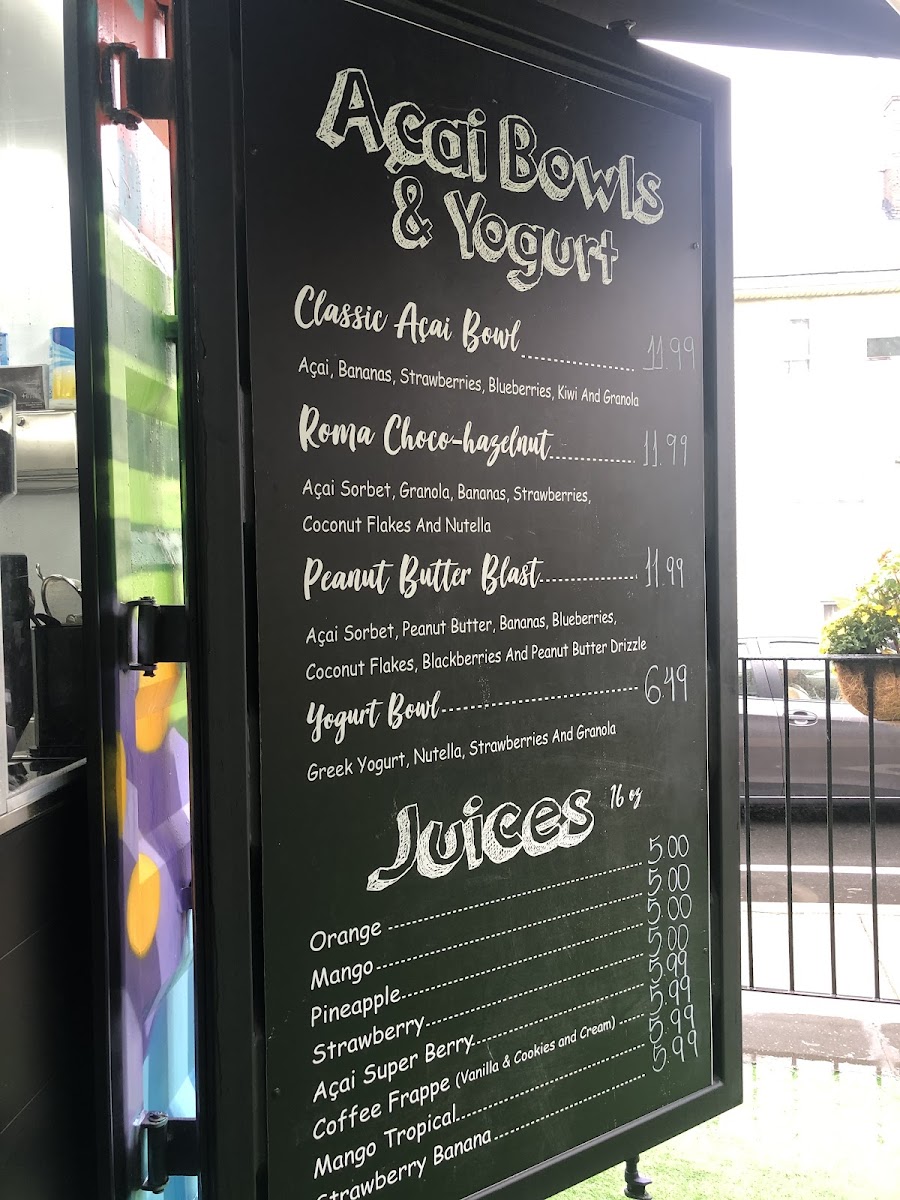 Açai Bowls
& Yogurt
Classic Açai Bowl 11.99
Açai, Bananas, Strawberries, Blueberries, Kiwi And Granola
Roma Choco-hazelnut 11.99
Açai Sorbet, Granola, Bananas, Strawberries,
Coconut Flakes And Nutella
Peanut Butter Blast 11.99
Açai Sorbet, Peanut Butter, Bananas, Blueberries,
Coconut Flakes, Blackberries And Peanut Butter Drizzle
Yogurt Bowl 6.49
Greek Yogurt, Nutella, Strawberries And Granola
Juices 16 oz
Orange 5.00
Mango 5.00
Pineapple 5.00
Strawberry 5.00
Açai Super Berry 5.99
Coffee Frappe (Vanilla & Cookies and Cream) 5.99
Mango Tropical 5.99
Strawberry Banana 5.99